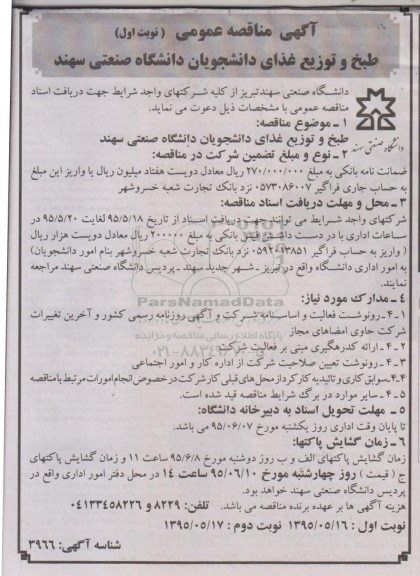 آگهی مناقصه عمومی ( نوبت اول )
طبخ و توزیع غذای دانشجویان دانشگاه صنعتی سهند
دانشگاه صنعتی سهند
دانشگاه صنعتی سهندتبریز از کلیه شرکتهای واجد شرایط جهت دریافت اسناد
مناقصه عمومی با مشخصات ذیل دعوت می نماید.
۱ ـ موضوع مناقصه:
طبخ و توزیع غذای دانشجویان دانشگاه صنعتی سهند
۲ ـ نوع و مبلغ تضمین شرکت در مناقصه:
ضمانت نامه بانکی به مبلغ ۲۷۰/۰۰۰/۰۰۰ ریال معادل دویست هفتاد میلیون ریال یا واریز این مبلغ
به حساب جاری فراگیر ۰۵۷۳۰۸۶۰۰۷ نزد بانک تجارت شعبه خسروشهر
۳ ـ محل و مهلت دریافت اسناد مناقصه:
شرکتهای واجد شرایط می توانند جهت دریافت اسناد از تاریخ ۹۵/۵/۱۸ لغایت ۹۵/۵/۲۰ در
ساعات اداری با در دست داشتن فیش بانکی به مبلغ ۲۰۰۰۰۰ ریال معادل دویست هزار ریال
( واریز به حساب فراگیر ۰۵۹۲۰۱۳۸۵۱ نزد بانک تجارت شعبه خسروشهر بنام امور دانشجویان)
به امور اداری دانشگاه واقع در تبریز ـ شهر جدید سهند ـ پردیس دانشگاه صنعتی سهند مراجعه
نمایند.
۴ ـ مدارک مورد نیاز:
۴-۱ ـ رونوشت فعالیت و اساسنامه شرکت و آگهی روزنامه رسمی کشور و آخرین تغییرات
شرکت حاوی امضاهای مجاز
۴-۲ ـ ارائه کدرهگیری مبنی بر فعالیت شرکت
۴-۳ ـ رونوشت تعیین صلاحیت شرکت از اداره کار و امور اجتماعی
۴-۴ ـ سوابق کاری و تائیدیه کارکرد از محل های قبلی کار شرکت در خصوص انجام امورات مرتبط با مناقصه
۴-۵ ـ سایر موارد در برگ شرایط مناقصه قید شده است.
۵ ـ مهلت تحویل اسناد به دبیرخانه دانشگاه:
تا پایان وقت اداری روز یکشنبه مورخ ۹۵/۰۶/۰۷ می باشد.
۶ ـ زمان گشایش پاکتها:
زمان گشایش پاکتهای الف و ب روز دوشنبه مورخ ۹۵/۶/۸ ساعت ۱۱ و زمان گشایش پاکتهای
ج ( قیمت ) روز چهارشنبه مورخ ۹۵/۰۶/۱۰ ساعت ۱۴ در محل دفتر امور اداری واقع در
پردیس دانشگاه صنعتی سهند خواهد بود.
هزینه آگهی ها بر عهده برنده مناقصه می باشد. تلفن: ۸۲۲۹ و ۰۴۱۳۳۴۵۸۲۲۶
نوبت اول : ۱۳۹۵/۰۵/۱۶ نوبت دوم : ۱۳۹۵/۰۵/۱۷
شناسه آگهی: ۳۹۶۶
ParsNamadData
پایگاه اطلاع رسانی مناقصه و مزایده